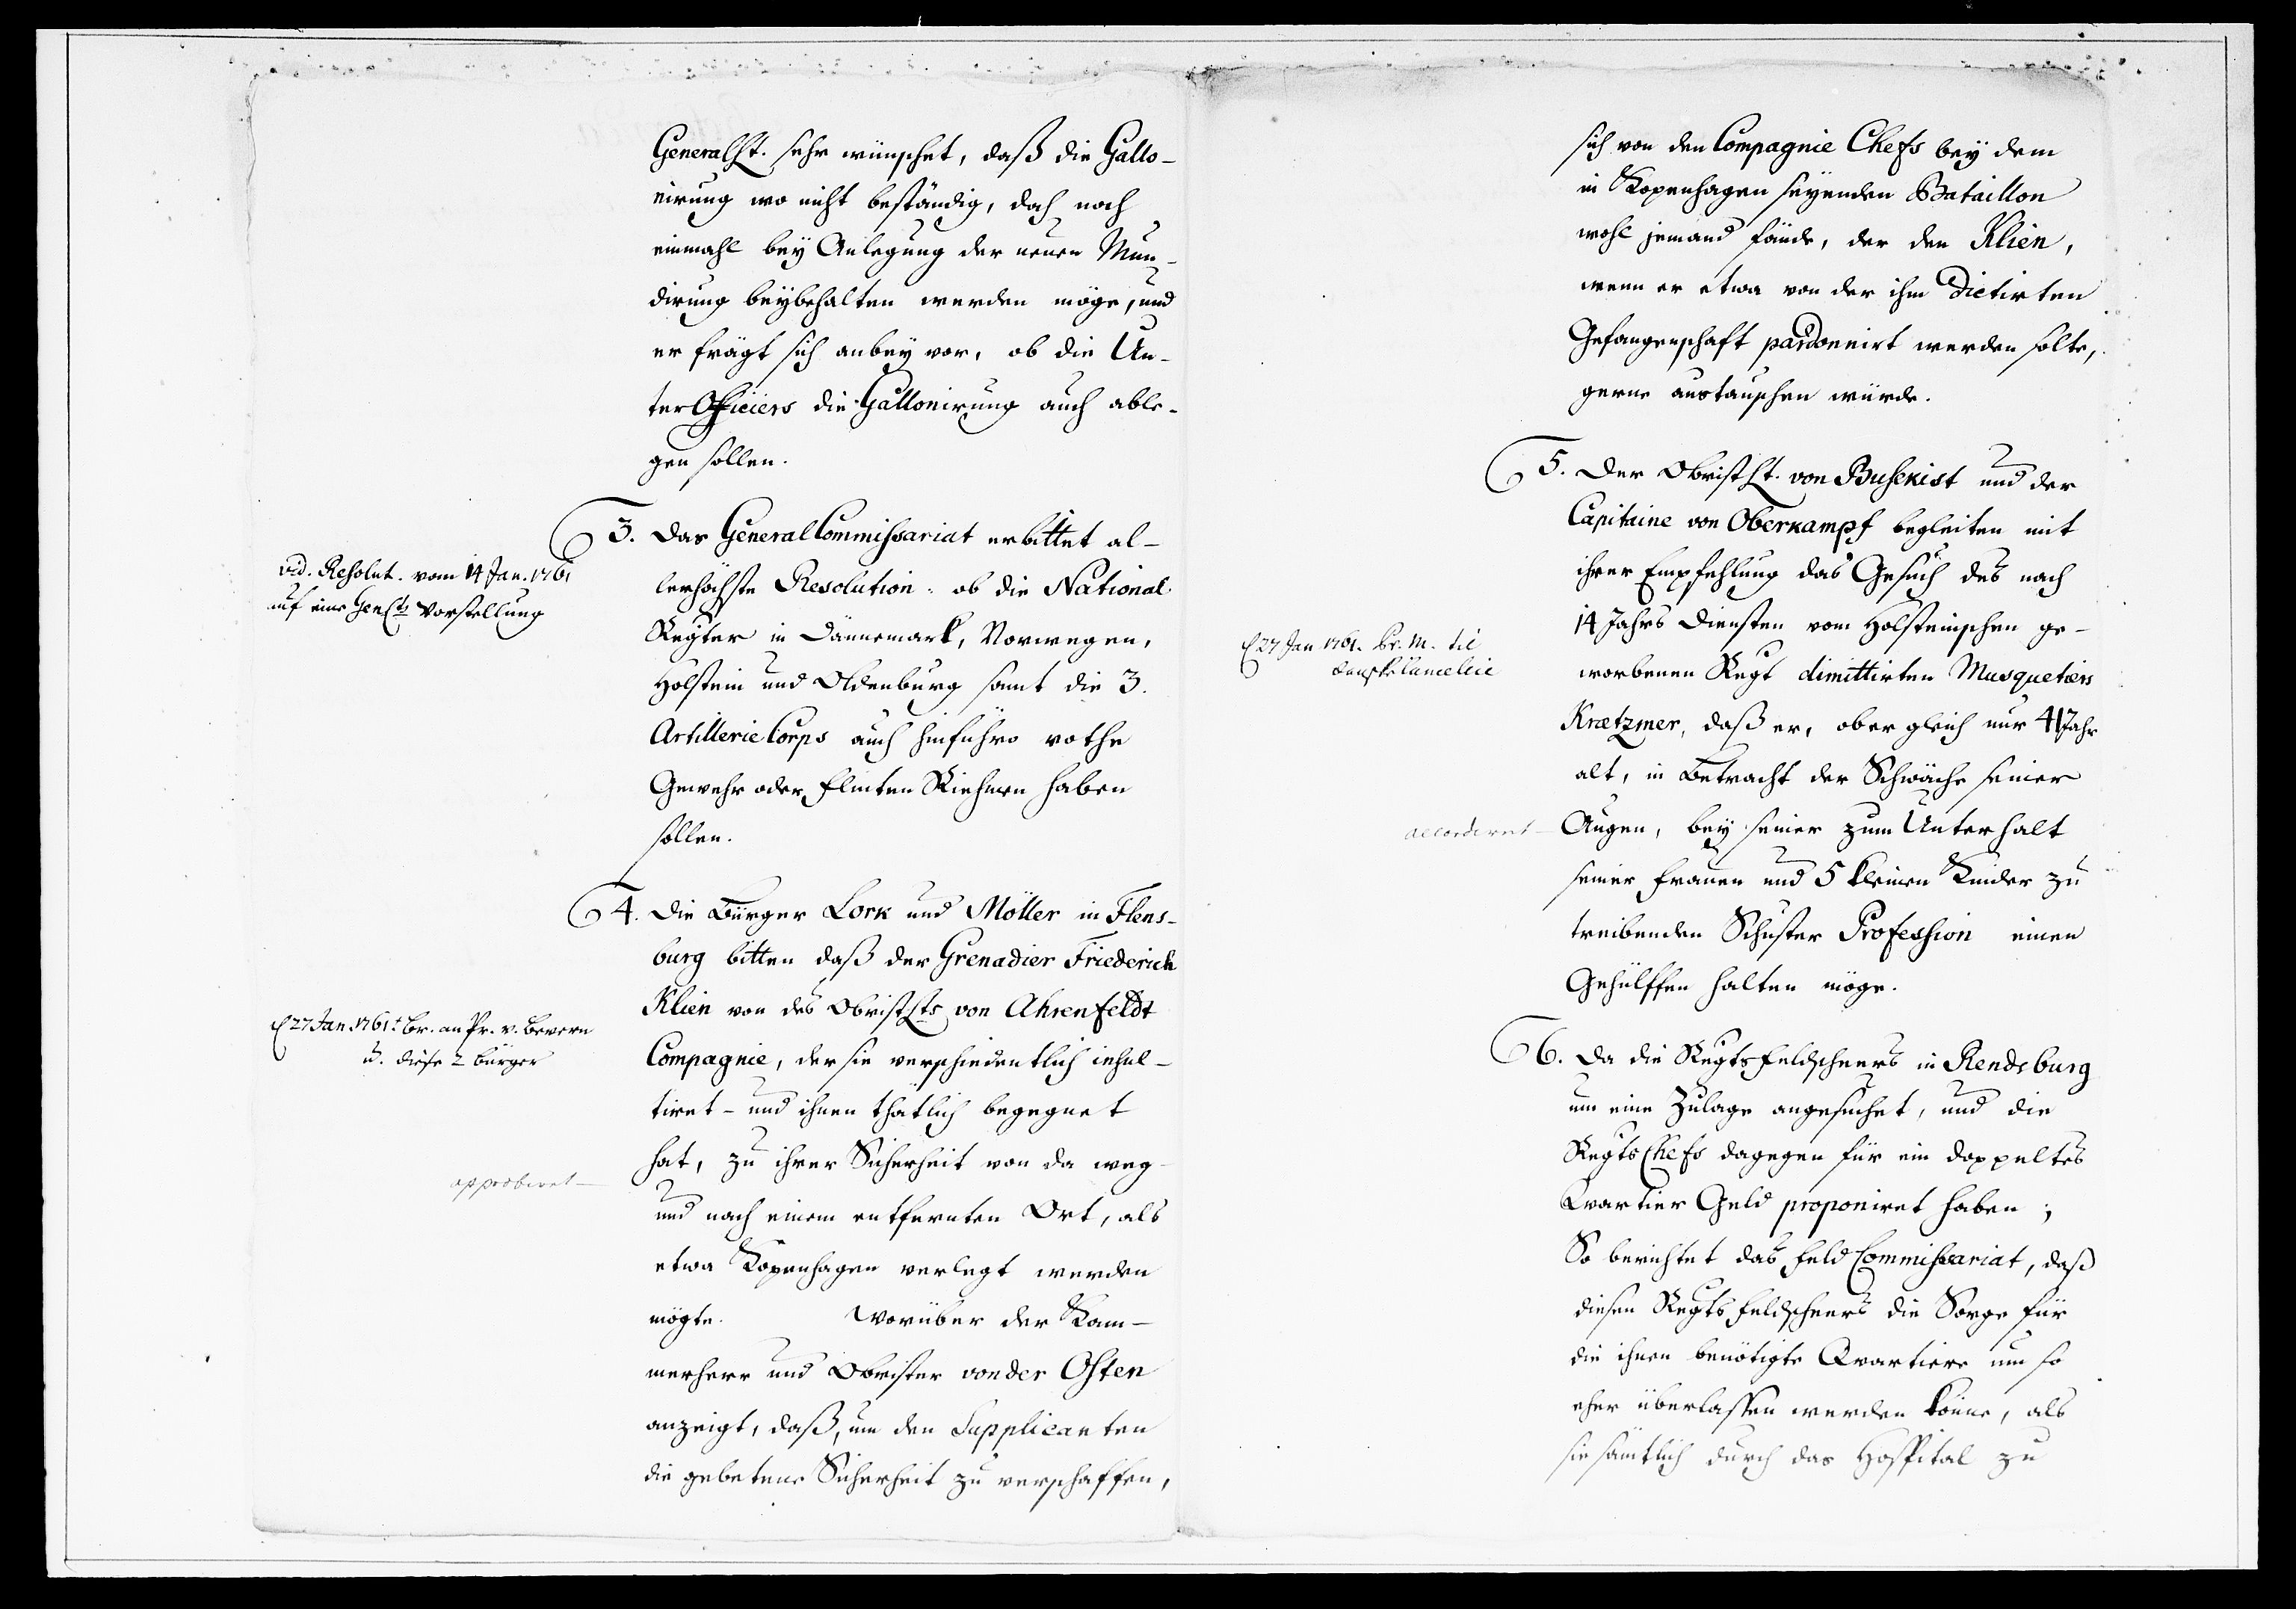 GeneralLt. sehr wünschet, daß die Gallo-
nirung wo nicht beständig, doch noch
einmahl bey Anlegung der neuen Mun-
dirung beybehalten werden möge, und
er frägt sich anbey vor, ob die Un-
terOfficiers die Gallonirung auch able-
gen sollen.
3. Das GeneralCommissariat erbittet al-
lerhöchste Resolution: ob die National
Regter in Dännemark, Norwegen,
Holstein und Oldenburg samt die 3.
ArtillerieCorps auch hinführo rothe
Gewehr oder Flinten Riehmen haben
sollen.
vid. Resolut. vom 14 Jan. 1761
auf eine GenLts Vorstellung
4. Die Bürger Lork und Möller in Flens-
burg bitten daß der Grenadier Friederich
Klien von des ObristLts von Ahrenfeldt
Compagnie, der sie verschiedentlich insul-
tiret - und ihnen thatlich begegnet
hat, zu ihrer Sicherheit von da weg-
und nach einem entfernten Ort, als
etwa Kopenhagen verlegt werden
mögte. Worüber der Kam-
merherr und Obrister von der Osten
anzeigt, daß, um den Supplicanten
die gebetene Sicherheit zu verschaffen,
E 27 Jan 1761. Br. an Pr. v. Bevern
u. diese 2 Bürger
approbiret
sich von den Compagnie Chefs bey dem
in Kopenhagen seyenden Bataillon
wohl jemand fände, der den Klien,
wenn er etwa von der ihm dictirten
Gefangenschaft pardonnirt werden solte,
gerne austauschen würde.
5. Der ObristLt. von Busekist und der
Capitaine von Oberkampf begleiten mit
ihrer Empfehlung das Gesuch des nach
14 Jahrs Diensten vom Holsteinischen ge-
worbenen Regt dimittirten Musquetiers
Krætzmer, daß er, ober gleich nur 41 Jahr
alt, in Betracht der Schwäche seiner
Augen, bey seiner zum Unterhalt
seiner Frauen und 5 kleinen Kinder zu
treibenden Schuster Profession einen
Gehülffen halten möge.
E 27 Jan 1761. Br. M. til
danske Cancellie
accordiret
6. Da die RegtsFeldscheers in Rendsburg
um eine Zulage angesuchet, und die
RegtsChefs dagegen für ein doppeltes
Qvartier Geld proponiret haben;
So berichtet das Feld Commissariat, daß
diesen Regts Feldscheers die Sorge für
die ihnen benötigte Qvartiere um so
eher überlassen werden könne, als
sie sämtlich durch das Hospital zu